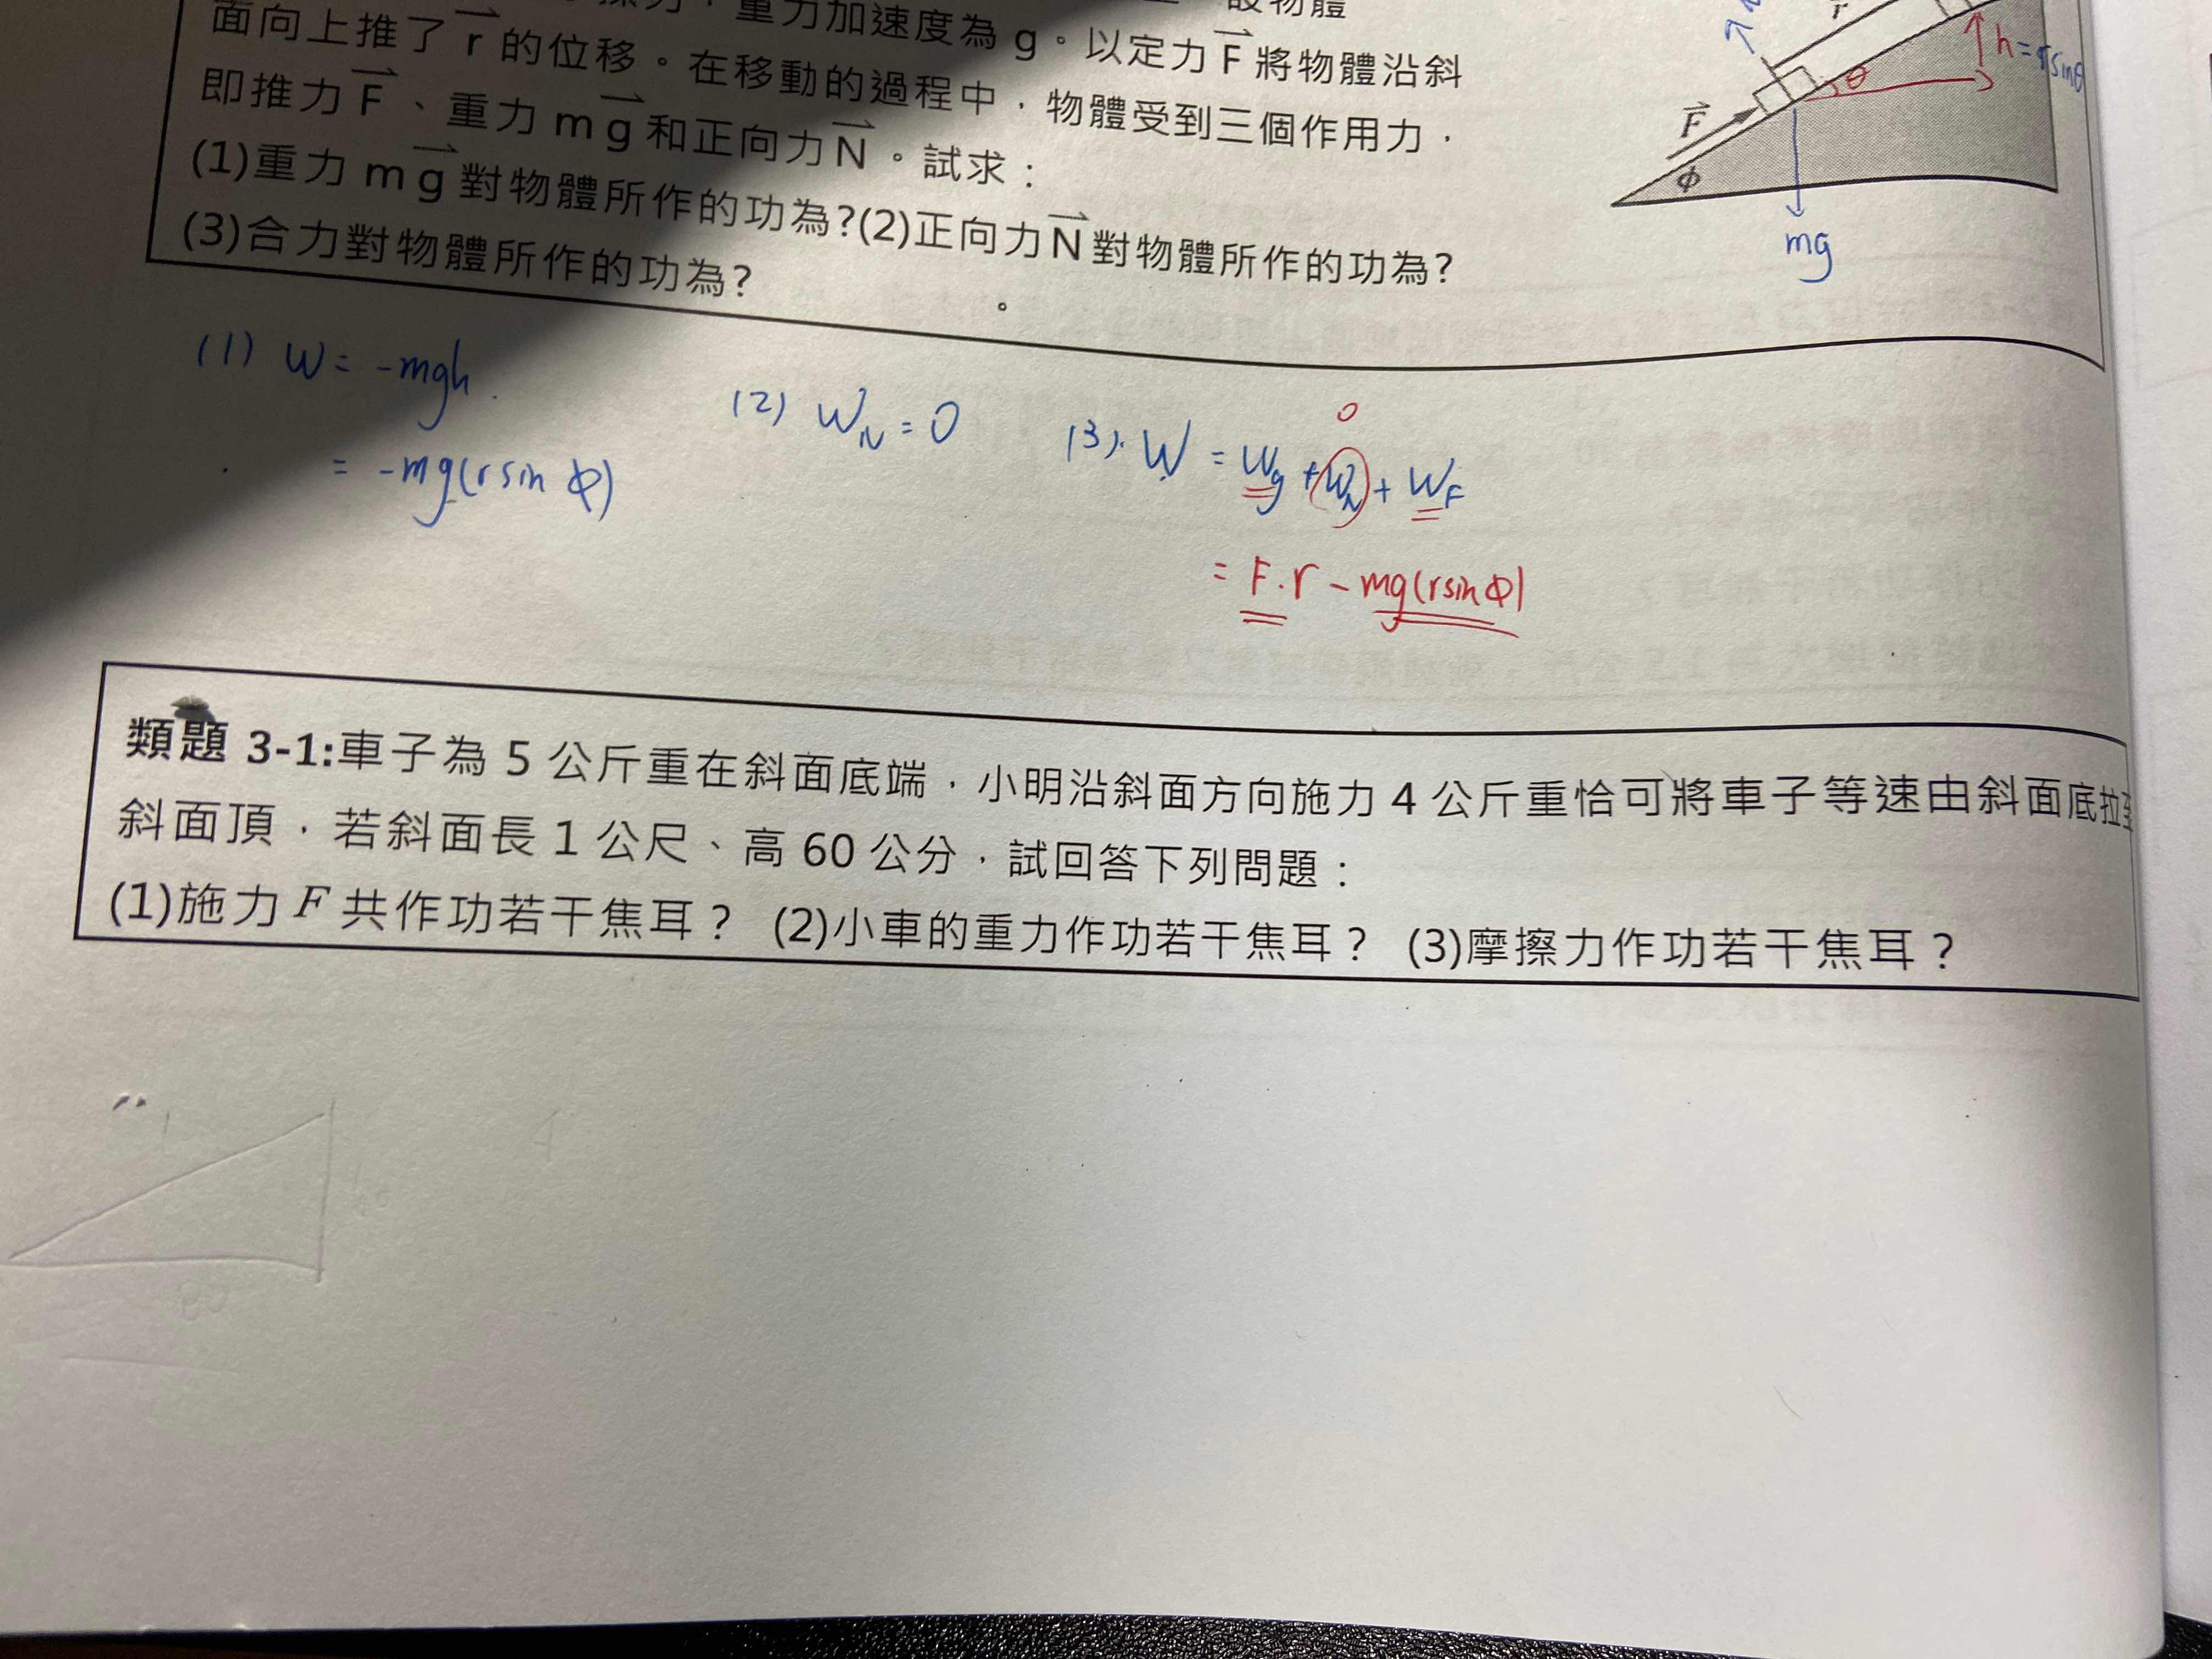 重力加速度為 g。以定力 F 將物體沿斜
面向上推了 r 的位移。在移動的過程中，物體受到三個作用力，
即推力 F、重力 mg 和正向力 N。試求：
(1)重力 mg 對物體所作的功為?(2)正向力 N 對物體所作的功為?
(3)合力對物體所作的功為?
r
h=rsinθ
θ
F
φ
mg
(1) W = -mgh
= -mg(r sin φ)
(2) W_N = 0
0
(3). W = W_g + W_N + W_F
= F.r - mg(rsin φ)
類題 3-1:車子為 5 公斤重在斜面底端，小明沿斜面方向施力 4 公斤重恰可將車子等速由斜面底拉至
斜面頂，若斜面長 1 公尺、高 60 公分，試回答下列問題：
(1)施力 F 共作功若干焦耳？ (2)小車的重力作功若干焦耳？ (3)摩擦力作功若干焦耳？
1
80